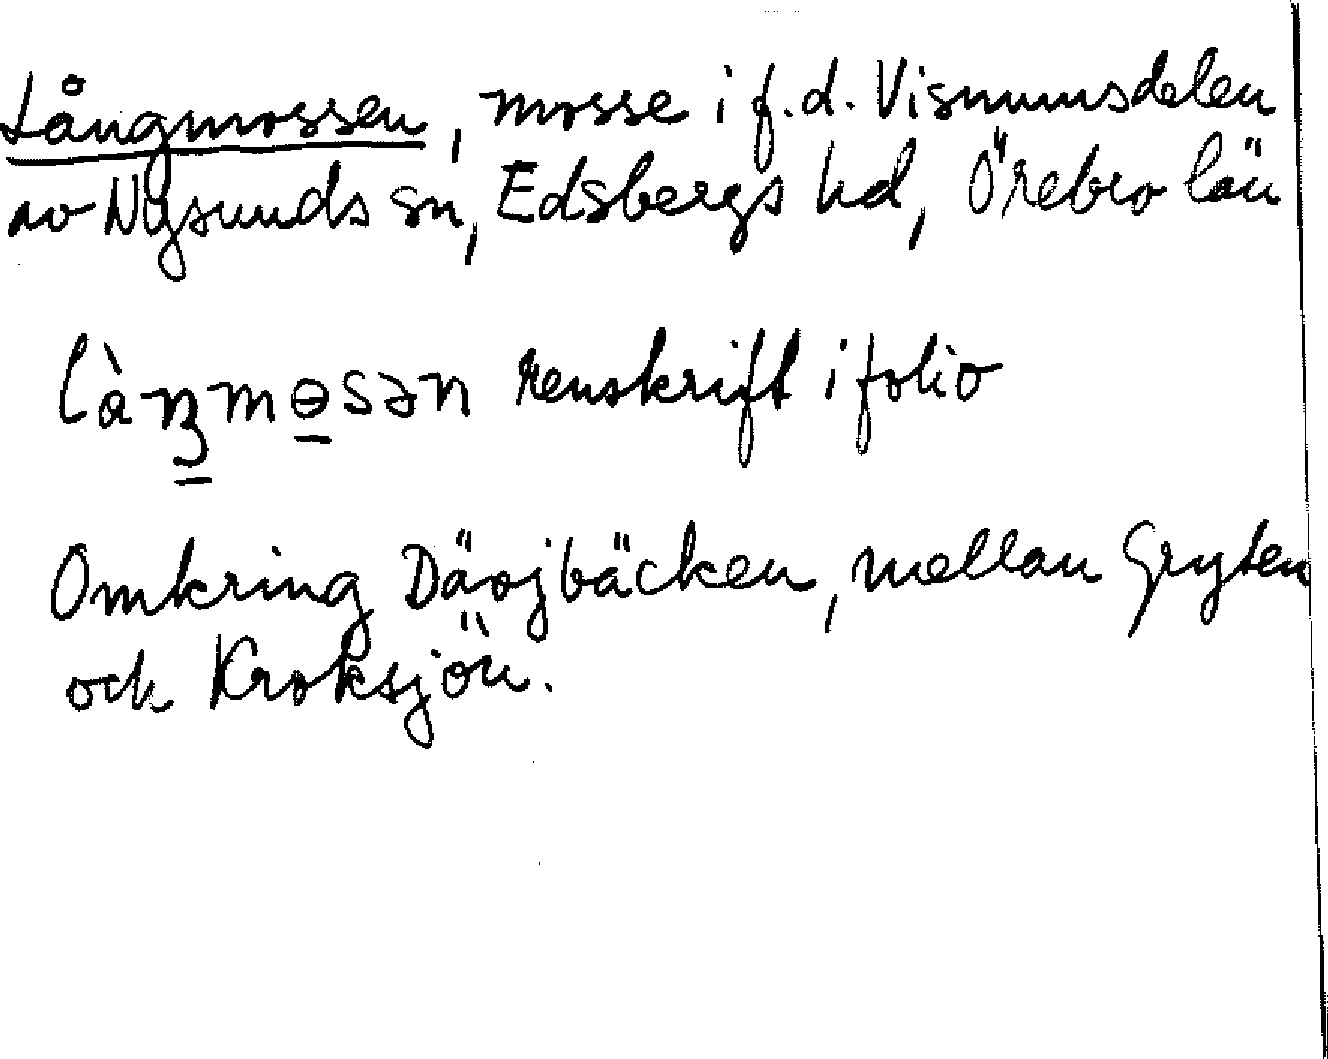 Långmossen, mosse i f.d. Visnumsdelen
av Nysunds sn, Edsbergs hd, Örebro län
làŋmɵsən renskrift i folio
Omkring Dävojbäcken, mellan Gryten
och Kroksjön.